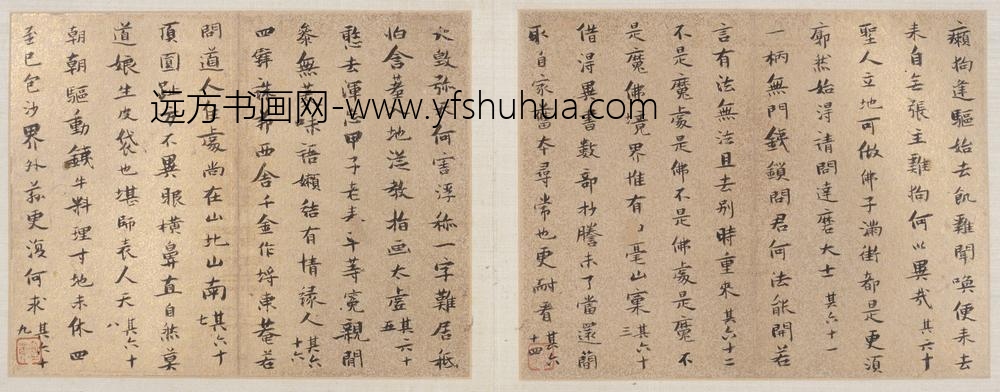 癩狗逢驅始去飢雞聞喚便来去
来自無張主雞狗何以異哉其六十
聖人立地可做佛子滿街都是更須
廓然始得請問達磨大士其六十一
一柄無門鐵鎖問君何法能開若
言有法無法且去别時重來其六十二
不是魔處是佛不是佛處是魔不
是魔佛境界惟有毫山窠其六十三
借得異書數部抄謄未了當還
取自家當本尋常也更耐看其六十四
毀弥何害浮稱一字難居祗
怕舍地教指画太虚其六十五
憨去渾忘甲子老来平等寃親閒
叅無義味語嬾結有情緣人其六十六
四西舍千金作埒東菴若
問道人住處尚在山北山南其六十七
頂圓不異眼橫鼻直自然莫
道娘生皮袋也堪師表人天其六十八
朝朝驅動鐵牛料理寸地未休四
至已包沙界外更復何求其六十九
远方书画网-www.yfshuhua.com